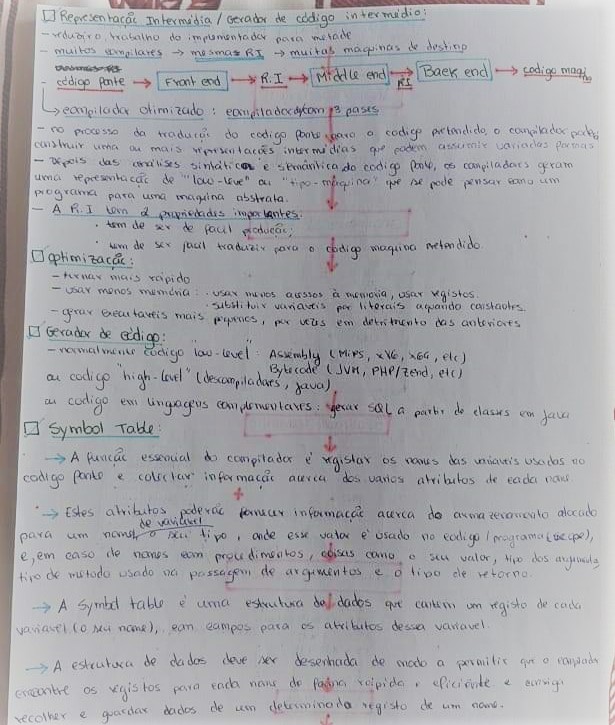 □ Representação Intermédia / Gerador de código intermédio:
- reduzir o trabalho do implementador para metade
- muitos compilares → mesmas RI → muitas maquinas de destino
- código fonte → Front end → R.I → Middle end → RI → Back end → codigo maq
↳ compilador otimizado: compilador com 3 pases
- no processo da tradução do codigo fonte para o codigo pretendido, o compilador pode
construir uma ou mais representações intermédias que podem assumir variadas formas
- Depois das análises sintática e semântica do codigo fonte, os compiladores geram
uma representação de "low-level" ou "tipo-máquina" que se pode pensar como um
programa para uma maquina abstrata.
- A R.I tem 2 propriedades importantes:
· tem de ser de facil produção;
· tem de ser facil traduzir para o código maquina pretendido.
□ Optimização:
- turnar mais rápido
- usar menos memória: . usar menos acessos à memória, usar registos.
· substituir variaveis por literais aquando constantes.
- gerar executaveis mais pequenos, por vezes em detrimento das anteriores
□ Gerador de código:
- normalmente código low-level: Assembly (MIPS, x86, x64, etc)
Bytecode (JVM, PHP/Zend, etc)
ou codigo "high-level" (descompiladores, java)
ou codigo em linguagens complementares: gerar SQL a partir de classes em Java
□ Symbol Table:
→ A função essencial do compilador é registar os nomes das variaveis usados no
codigo fonte e colectar informação acerca dos varios atributos de cada nome
→ Estes atributos poderão fornecer informação acerca do armazenamento alocado
para um nome de variável, o seu tipo, onde esse valor é usado no codigo/programa (scope),
e, em caso de nomes com procedimentos, coisas como o seu valor, tipo dos argumentos,
tipo de método usado na passagem de argumentos e o tipo de retorno.
→ A symbol table é uma estrutura de dados que contém um registo de cada
variavel (o seu nome), com campos para os atributos dessa variavel.
→ A estrutura de dados deve ser desenhada de modo a permitir que o compilador
encontre os registos para cada nome de forma rápida e eficiente e consiga
recolher e guardar dados de um determinado registo de um nome.